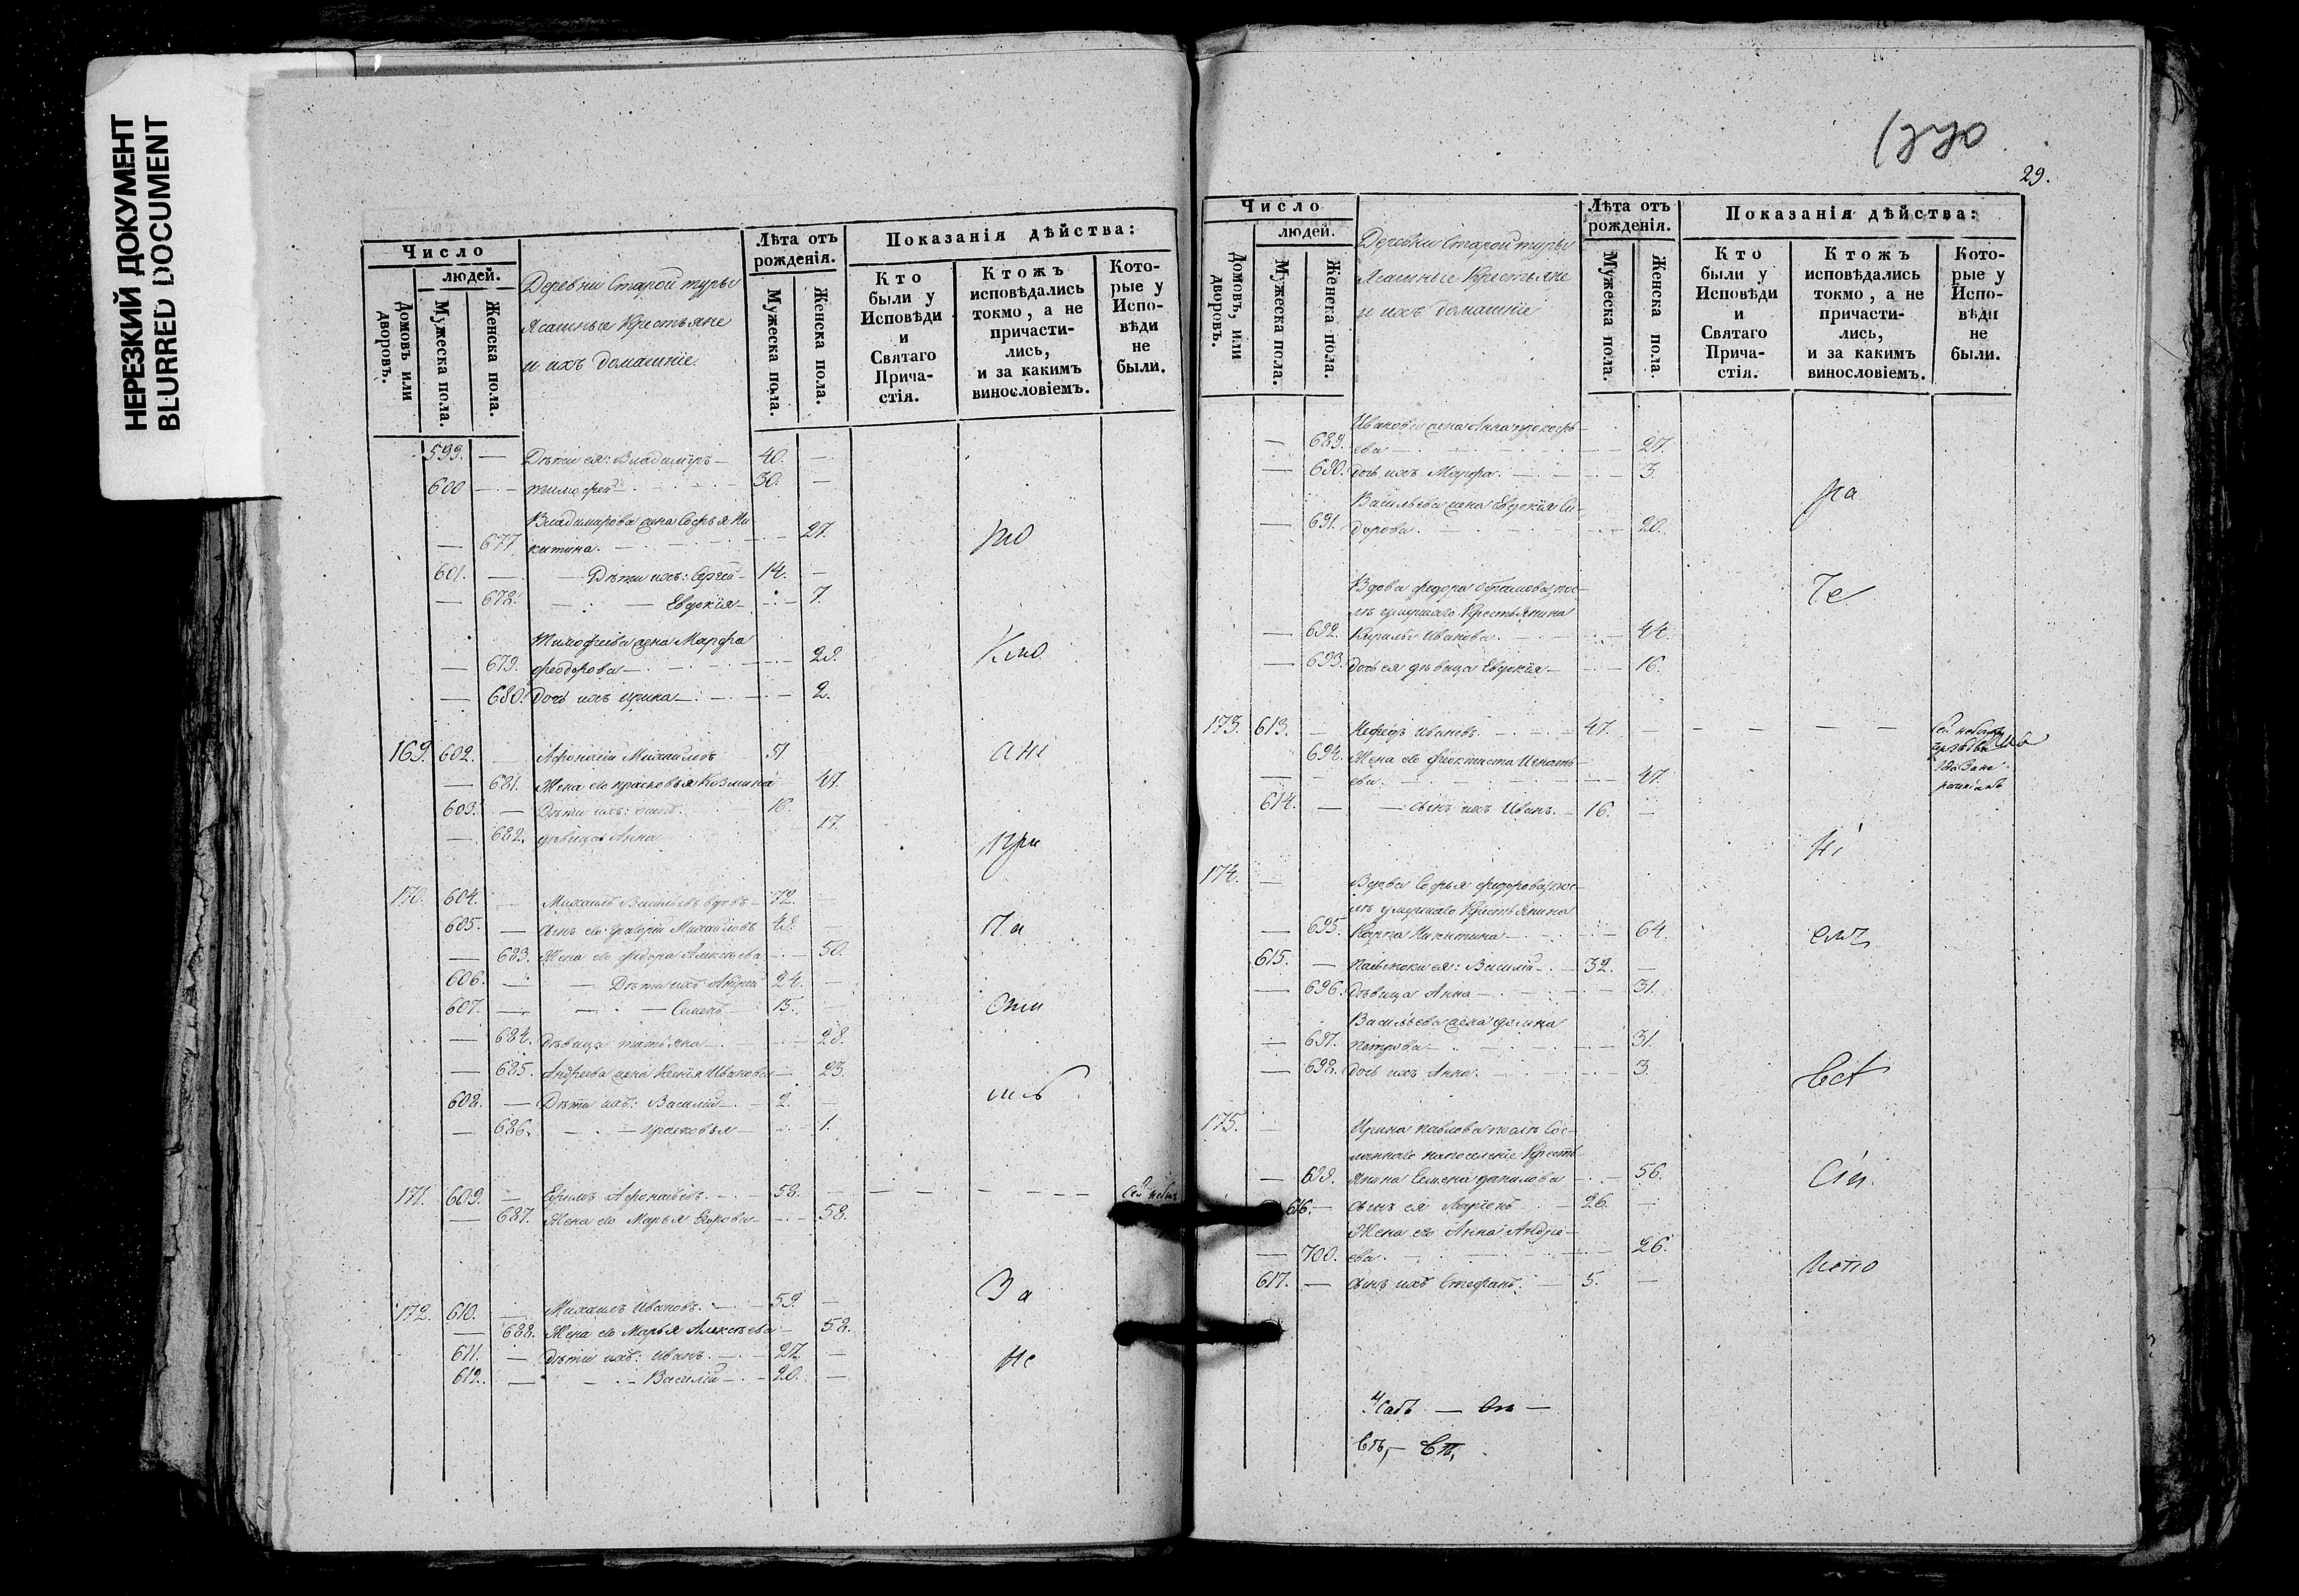 НЕРЕЗКИЙ ДОКУМЕНТ
BLURRED DOCUMENT
Число
людей.
Домовъ или дворовъ.
Мужеска пола.
Женска пола.
Деревни Старой турьи
Ясашные Крестьяне
и ихъ домашніе.
Лѣта отъ рожденія.
Мужеска пола.
Женска пола.
Показанія дѣйства:
Кто были у Исповѣди и Святаго Причастія.
Ктожъ исповѣдались токмо, а не причастились, и за какимъ винословіемъ.
Которые у Исповѣди не были.
599. — Дѣти ея: Владимиръ — 40. —
600 — Тимофей — 30. —
Владимирова жена Софья Ни
— 677 китина. — 27.
601. — Дѣти ихъ: Сергей — 14. —
— 678. Евдокія — 7.
Тимофеева жена Марфа
— 679. феодорова — 29.
— 680. Дочь ихъ ирина — 2.
169. 602. — Афонасій Михайловъ 51
— 681. Жена его прасковья Козмина 47.
603. — Дѣти ихъ: 16.
— 682. дѣвица Анна 17.
170. 604. — Михаилъ Васильевъ вдовъ — 72. —
605. — сынъ его Григорій Михайловъ 48. —
— 683. Жена его федора Алексѣева — 50.
606. — Дѣти ихъ Андрей 24. —
607. — Семенъ 15. —
— 684. дѣвица татьяна — 28.
— 685. Андреева жена Ксенія Иванова — 23.
608. — Дѣти ихъ: Василій — 2. —
— 686. — прасковья — 1.
171. 609. — Ефимъ Афонасьевъ. — 58. —
— 687. Жена его Марья Егорова — 58.
172. 610. — Михаилъ Ивановъ. — 59. —
— 688. Жена его Марья Алексѣева — 58.
611. — Дѣти ихъ: Иванъ. — 27. —
612. — Василій — 20. —
За
Не
29.
Число
людей.
Домовъ, или дворовъ.
Мужеска пола.
Женска пола.
Деревни Старой турьи
Ясашные Крестьяне
и ихъ домашніе
Лѣта отъ рожденія.
Мужеска пола.
Женска пола.
Показанія дѣйства:
Кто были у Исповѣди и Святаго Причастія.
Ктожъ исповѣдались токмо, а не причастились, и за какимъ винословіемъ.
Которые у Исповѣди не были.
Иванова жена Анна прокофь-
— 689. ева — 27.
— 690. дочь ихъ Марфа. — 3.
Васильева жена Евдокія Си-
— 691. дорова. — 20.
Вдова федора Ефимова, пос-
лѣ умершаго Крестьянина
— 692. Кирилы Иванова. — 44.
— 693. дочь ея дѣвица Евдокія — 16.
173. 613. — Нефедъ Ивановъ. — 47. —
694. Жена его феоктиста Игнать-
— ева. — 47.
614. — сынъ ихъ Иванъ. — 16. —
174. — Вдова Софья федорова, пос-
лѣ умершаго Крестьянина
— 695. Карпа Никитина — 64.
615. — Пасынокъ ея: Василій — 32. —
— 696. дѣвица Анна — 31.
Васильева жена домна
— 697. петрова — 31.
— 698. дочь ихъ Анна. — 3.
175. — Ирина павлова послѣ Сос-
ланнаго на поселеніе Кресть-
— 699. янина Семена данилова — 56.
616. — сынъ ея Ларіонъ — 26. —
Жена его Анна Андре-
— 700. ева. — 26.
617. — сынъ ихъ Стефанъ. — 5. —